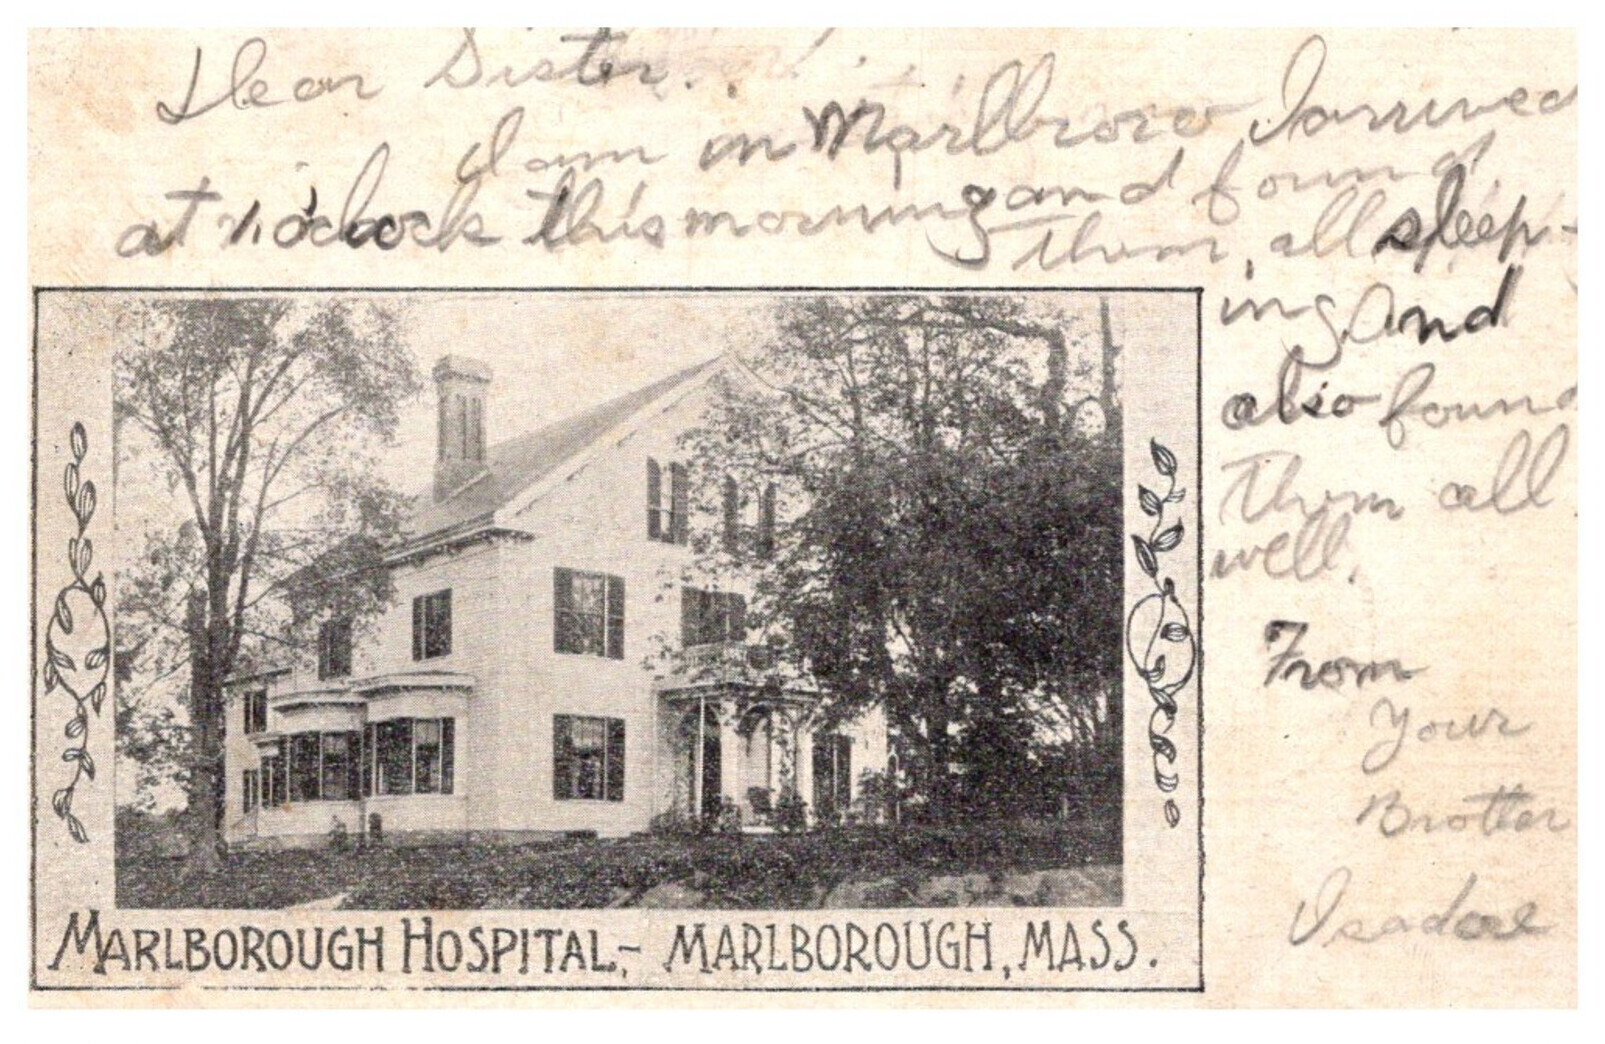 Dear Sister..
I am in Marlboro I arrived
at o'clock this morning and found
them all sleep-
ing And
also found
them all
well.
From
Your
Brother
Isadore
MARLBOROUGH HOSPITAL,- MARLBOROUGH, MASS.